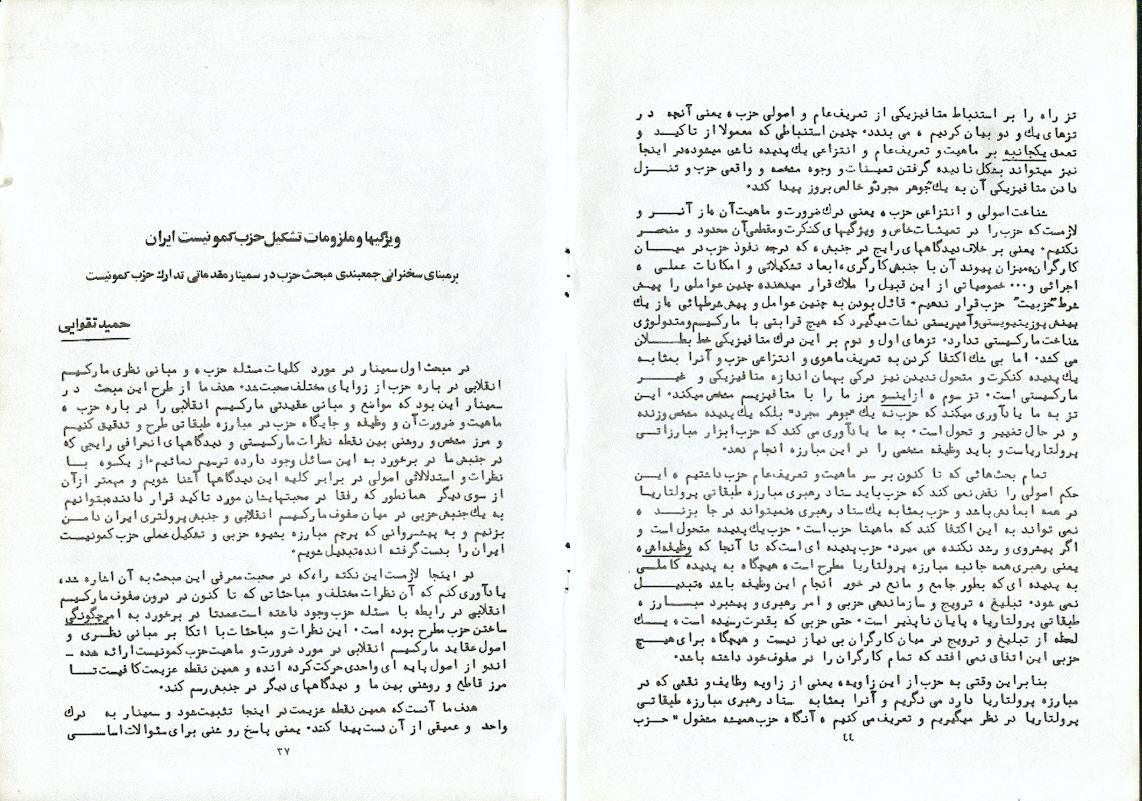 تز راه را بر استنباط متافیزیکی از تعریف عام و اصولی حزب ، یعنی آنچه در
تزهای یك و دو بیان کردیم ، می بندد. چنین استنباطی که معمولا از تاکید و
تعمق یکجانبه بر ماهیت و تعریف عام و انتزاعی یك پدیده ناشی میشود در اینجا
نیز میتواند بشکل نادیده گرفتن تعینات و وجوه مشخصه و واقعی حزب و تنزل
دادن متافیزیکی آن به یك "جوهر مجرد" و خالص بروز پیدا کند.
شناخت اصولی و انتزاعی حزب ، یعنی درك ضرورت و ماهیت آن ، از آنرو
لازمست که حزب را در تعینات خاص و ویژگیهای کنکرت و مقطعی آن محدود و منحصر
نکنیم. یعنی بر خلاف دیدگاههای رایج در جنبش ، که درجه نفوذ حزب در میان
کارگران ، میزان پیوند آن با جنبش کارگری ، ابعاد تشکیلاتی و امکانات عملی ،
اجرائی و ... خصوصیاتی از این قبیل را ملاك قرار میدهند ، چنین عواملی را پیش
شرط "حزبیت" حزب قرار ندهیم. قائل بودن به چنین عوامل و پیش شرطهائی ، از یك
بینش پوزیتیویستی و آمپریستی نشات میگیرد که هیچ قرابتی با مارکسیسم و متدولوژی
شناخت مارکسیستی ندارد. تزهای اول و دوم بر این درك متافیزیکی خط بطلان
می کشد. اما بی شك اکتفا کردن به تعریف ماهوی و انتزاعی حزب و آنرا بمثابه
یك پدیده کنکرت و متحول ندیدن نیز درکی بهمان اندازه متافیزیکی و غیر
مارکسیستی است. تز سوم ، از اینسو مرز ما را با متافیزیسم مشخص میکند. این
تز به ما یادآوری میکند که حزب نه یك "جوهر مجرد" بلکه یك پدیده مشخص و زنده
و در حال تغییر و تحول است. به ما یادآوری می کند که حزب ابزار مبارزاتی
پرولتاریاست و باید وظیفه مشخصی را در این مبارزه انجام دهد.
تمام بحث هائی که تا کنون بر سر ماهیت و تعریف عام حزب داشتیم ، این
حکم اصولی را نقض نمی کند که حزب باید ستاد رهبری مبارزه طبقاتی پرولتاریا
در همه ابعادش باشد و حزب بمثابه یك ستاد رهبری ، نمیتواند در جا بزند ،
نمی تواند به این اکتفا کند که ماهیتا حزب است. حزب یك پدیده متحول است و
اگر پیشروی و رشد نکند ، می میرد. حزب پدیده ای است که تا آنجا که وظیفه اش ،
یعنی رهبری همه جانبه مبارزه پرولتاریا مطرح است ، هیچگاه به پدیده کاملی
به پدیده ای که بطور جامع و مانع در خور انجام این وظیفه باشد ، تبدیل
نمی شود. تبلیغ ، ترویج و سازماندهی حزبی و امر رهبری و پیشبرد مبارزه
طبقاتی پرولتاریا ، پایان ناپذیر است. حتی حزبی که بقدرت رسیده است ، یك
لحظه از تبلیغ و ترویج در میان کارگران بی نیاز نیست و هیچگاه برای هیچ
حزبی این اتفاق نمی افتد که تمام کارگران را در صفوف خود داشته باشد.
بنابراین وقتی به حزب از این زاویه ، یعنی از زاویه وظایف و نقشی که در
مبارزه پرولتاریا دارد می نگریم و آنرا بمثابه ستاد رهبری مبارزه طبقاتی
پرولتاریا در نظر میگیریم و تعریف می کنیم ، آنگاه حزب همیشه مشغول " حزب
٤٤
ویژگیها و ملزومات تشکیل حزب کمونیست ایران
بر مبنای سخنرانی جمعبندی مبحث حزب در سمینار مقدماتی تدارك حزب کمونیست
حمید تقوایی
در مبحث اول سمینار در مورد کلیات مسئله حزب ، و مبانی نظری مارکسیسم
انقلابی در باره حزب از زوایای مختلف صحبت شد. هدف ما از طرح این مبحث در
سمینار این بود که مواضع و مبانی عقیدتی مارکسیسم انقلابی را در باره حزب ،
ماهیت و ضرورت آن و وظیفه و جایگاه حزب در مبارزه طبقاتی طرح و تدقیق کنیم
و مرز مشخص و روشنی بین نقطه نظرات مارکسیستی و دیدگاههای انحرافی رایجی که
در جنبش ما در برخورد به این مسائل وجود دارد ، ترسیم نمائیم. از یکسو ، با
نظرات و استدلالاتی اصولی در برابر کلیه این دیدگاهها آشنا شویم و مهمتر از آن
از سوی دیگر همانطور که رفقا در صحبتهایشان مورد تاکید قرار دادند ، بتوانیم
به یك جنبش حزبی در میان صفوف مارکسیسم انقلابی و جنبش پرولتری ایران دامن
بزنیم و به پیشروانی که پرچم مبارزه بشیوه حزبی و تشکیل عملی حزب کمونیست
ایران را بدست گرفته اند ، تبدیل شویم.
در اینجا لازمست این نکته را ، که در صحبت معرفی این مبحث به آن اشاره شد ،
یادآوری کنم که آن نظرات مختلف و مباحثاتی که تا کنون در درون صفوف مارکسیسم
انقلابی در رابطه با مسئله حزب وجود داشته است عمدتا در برخورد به امر چگونگی
ساختن حزب مطرح بوده است. این نظرات و مباحثات با اتکا بر مبانی نظری و
اصول عقاید مارکسیسم انقلابی در مورد ضرورت و ماهیت حزب کمونیست ارائه شده ـ
اند و از اصول پایه ای واحدی حرکت کرده اند ، و همین نقطه عزیمت کافیست تا
مرز قاطع و روشنی بین ما و دیدگاههای دیگر در جنبش رسم کند.
هدف ما آنست که همین نقطه عزیمت در اینجا تثبیت شود و سمینار به درك
واحد و عمیقی از آن دست پیدا کند. یعنی پاسخ روشنی برای سئوالات اساسی
٢٧